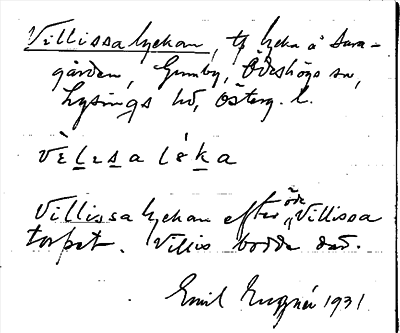 Villissalyckan, tg lycka å Sura-
gården, Gumby, Ödeshögs sn,
Lysings hd, Österg. l.
vèlesa léka
Villissalyckan efter öde Villissa
torpet. Villis bodde där.
Emil 1931